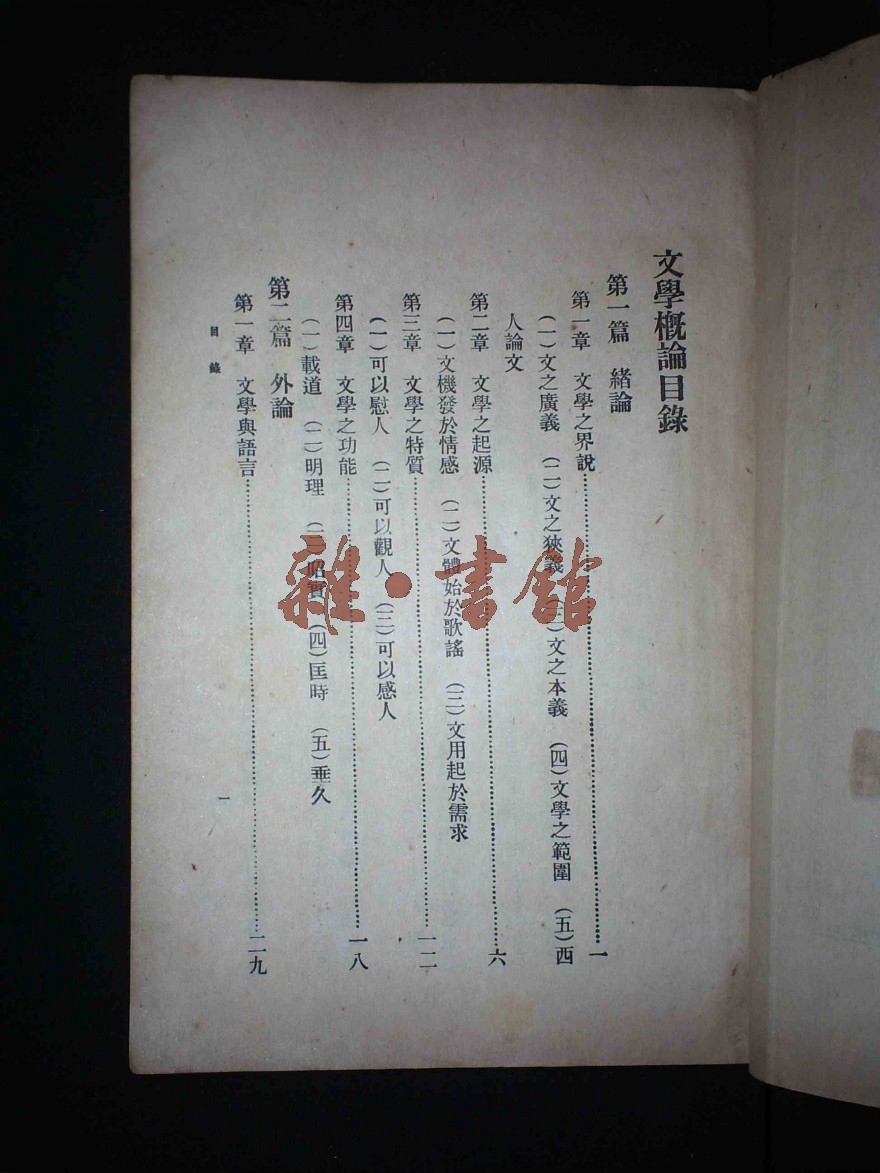 文學概論目錄
第一篇 緒論
第一章 文學之界說⋯⋯一
(一)文之廣義 (二)文之狹義 (三)文之本義 (四)文學之範圍 (五)西
人論文
第二章 文學之起源⋯⋯六
(一)文機發於情感 (二)文體始於歌謠 (三)文用起於需求
第三章 文學之特質⋯⋯一二
(一)可以慰人 (二)可以觀人 (三)可以感人
第四章 文學之功能⋯⋯一八
(一)載道 (二)明理 (三)昭實 (四)匡時 (五)垂久
第二篇 外論
第一章 文學與語言⋯⋯二九
目錄
一
雜·書館